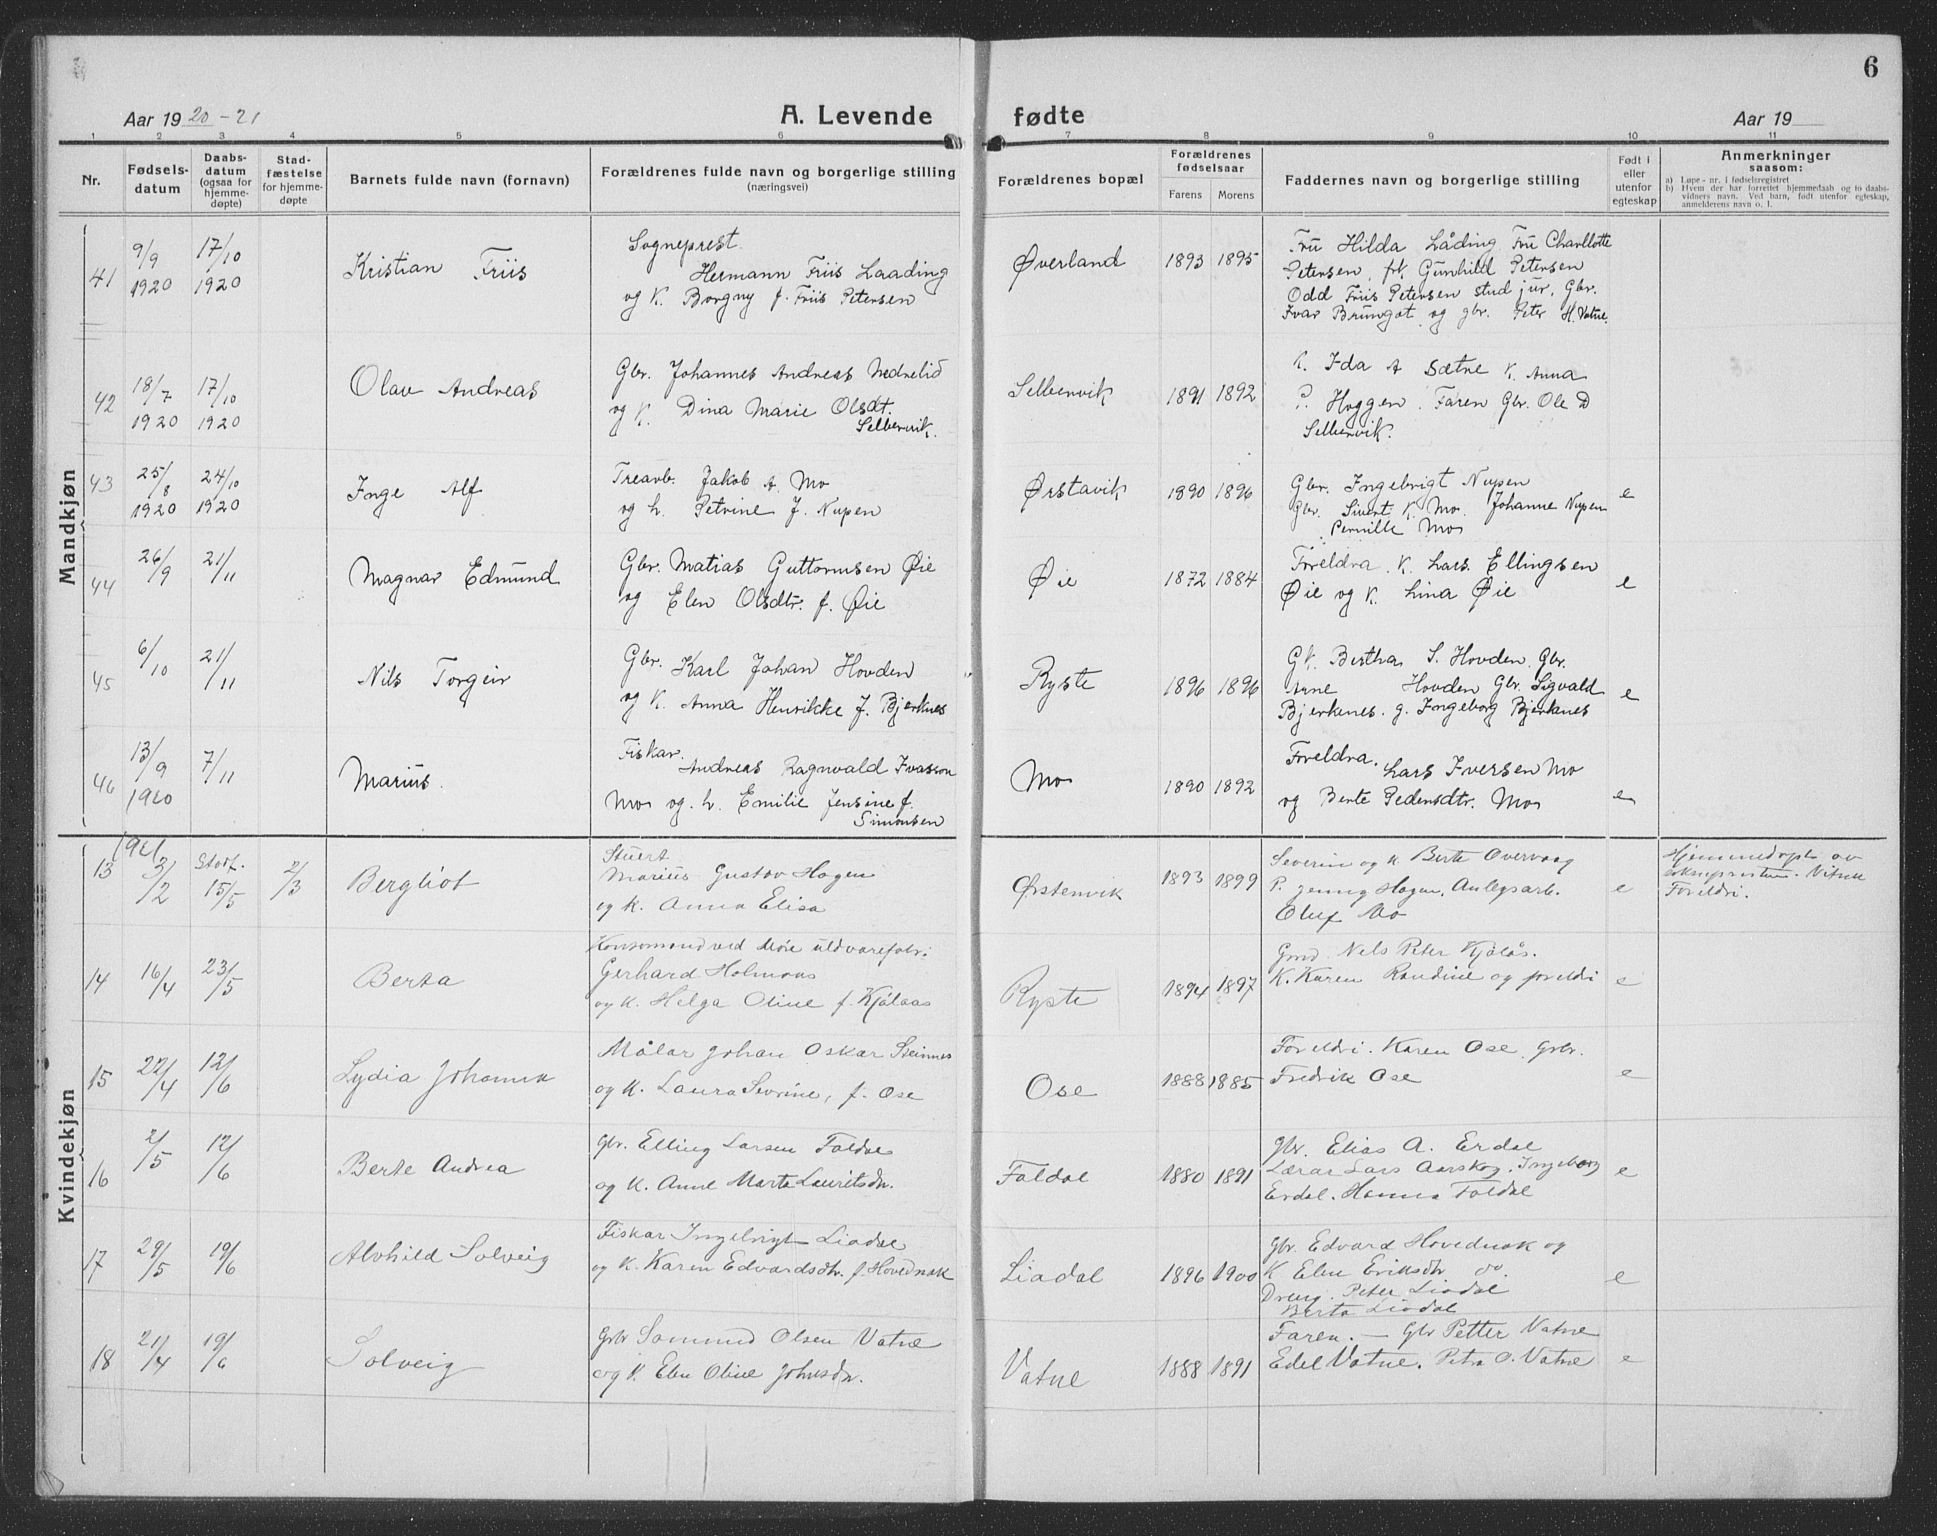 6
Aar 1920-21
A. Levende fødte
Aar 19
1 2 3 4 5 6 7 8 9 10 11
Nr.
Fødsels-
datum
Daabs-
datum
(ogsaa for
hjemme-
døpte)
Stad-
fæstelse
for hjemme-
døpte
Barnets fulde navn (fornavn)
Forældrenes fulde navn og borgerlige stilling
(næringsvei)
Forældrenes bopæl
Forældrenes
fødselsaar
Farens Morens
Faddernes navn og borgerlige stilling
Født i
eller
utenfor
egteskap
Anmerkninger
saasom:
a) Løpe-nr. i fødselsregistret
b) Hvem der har forrettet hjemmedaab og to daabs-
vidners navn. Ved barn, født utenfor egteskap,
anmelderens navn o. l.
Mandkjøn
41 9/9 1920 17/10 1920
Kristian Friis
Sogneprest
Hermann Friis Laading
og K. Borgny f. Friis Petersen
Øverland 1893 1895
Fru Hilda Låding Fru Charllotte
Petersen, frk. Gunhild Petersen
Odd Friis Petersen stud jur, Gbr.
Ivar Brungot og gbr. Peter H. Vatne.
42 18/7 1920 17/10 1920
Olav Andreas
Gbr. Johannes Andreas Nedrelid
og K. Dina Marie Olsdt.
Selbervik.
Selbervik 1891 1892
K. Ida A Sætre K. Anna
P. Hoggen. Faren Gbr. Ole D
Selbervik.
43 25/8 1920 24/10 1920
Inge Alf
Trearb. Jakob A. Mo
og h. Petrine f. Nupen
Ørstavik 1890 1896
Gbr. Ingebrigt Nupen
Gbr. Sivert K. Mo. Johanne Nupen
Pernille Mo
e
44 26/9 21/11
Magnar Edmund
Gbr. Matias Guttormsen Øie
og Elen Olsdtr. f. Øie
Øie 1872 1884
Foreldra. K. Lars Ellingsen
Øie og K. Lina Øie
e
45 6/10 21/11
Nils Torgeir
Gbr. Karl Johan Hovden
og K. Anna Henrikke f. Bjerknes
Ryste 1896 1896
GK. Bertha S. Hovden. Gbr.
Arne Hovden Gbr. Sigvald
Bjerkenes. g. Ingeborg Bjerknes
e
46 13/9 1920 7/11
Marius.
Fiskar.
Andreas Ragnvald Ivasson
Mo og h. Emilie Jensine f.
Simonsen
Mo 1890 1892
Foreldra. Lars Iversen Mo
og Berte Pedersdtr. Mo
e
Kvindekjøn
1921
13 3/2 Stadf. 15/5 2/3
Bergliot
Stuert
Marius Gustav Hagen
og K. Anna Elisa
Ørstenvik 1893 1899
Severin og K Berte Overvaag
P. Jenny Hagen, Anlegsarb.
Oluf Mo
e
Hjemmedøpt av
soknepresten. Vitne
Foreldri.
14 16/4 23/5
Berta
Gerhard Holmaas
og K. Helga Oline f. Kjålaas
Ryste 1894 1897
Gmd. Nels Peter Kjålås.
K. Karen Randine og foreldri
e
15 22/4 12/6
Lydia Johanna
Målar Johan Oskar Steinnes
og K. Laura Sevrine, f. Ose
Ose 1888 1885
Foreldri. Karen Ose. Gbr.
Fredrik Ose
e
16 2/5 12/6
Berte Andrea
Gbr. Elling Larsen Foldal
og K. Anne Marta Lauritsdr.
Foldal 1880 1891
Gbr. Elias A. Erdal
Lærar Lars Aarskog. Ingeborg
Erdal. Hanna Foldal
e
17 29/5 19/6
Alvhild Solveig
Fiskar Ingebrigt Liadal
og K. Karen Edvardsdtr. f. Hovednak
Liadal 1896 1900
Gbr. Edvard Hovednak og
K Elen Eriksdtr do.
Dreng. Peter Liadal
Berta Liadal
e
18 21/4 19/6
Solveig
Gbr Samund Olsen Vatne
og K. Elen Oline Johnsdr.
Vatne 1888 1891
Faren. — Gbr Petter Vatne
Edel Vatne. Petra O. Vatne
e